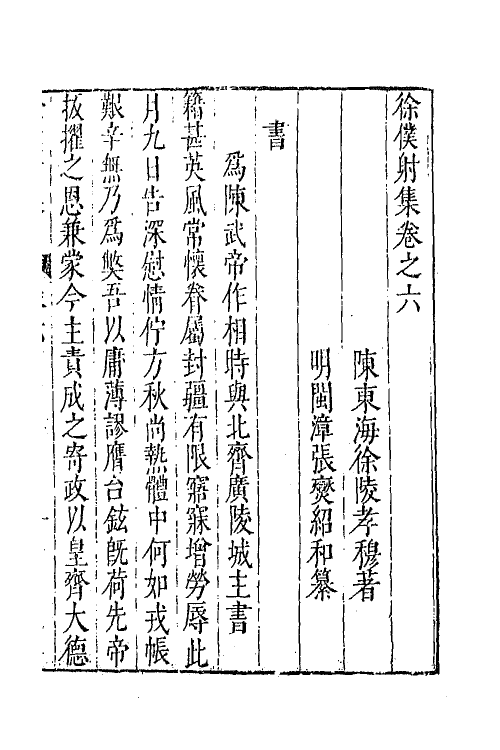 徐僕射集卷之六
陳東海徐陵孝穆著
明閩漳張燮紹和纂
書
爲陳武帝作相時與北齊廣陵城主書
籍甚英風常懷眷屬封疆有限寤寐增勞辱此
月九日告深慰情佇方秋尚熱體中何如戎帳
艱辛無乃爲獘吾以庸薄謬膺台鉉旣荷先帝
拔擢之恩兼蒙今主責成之寄政以皇齊大德